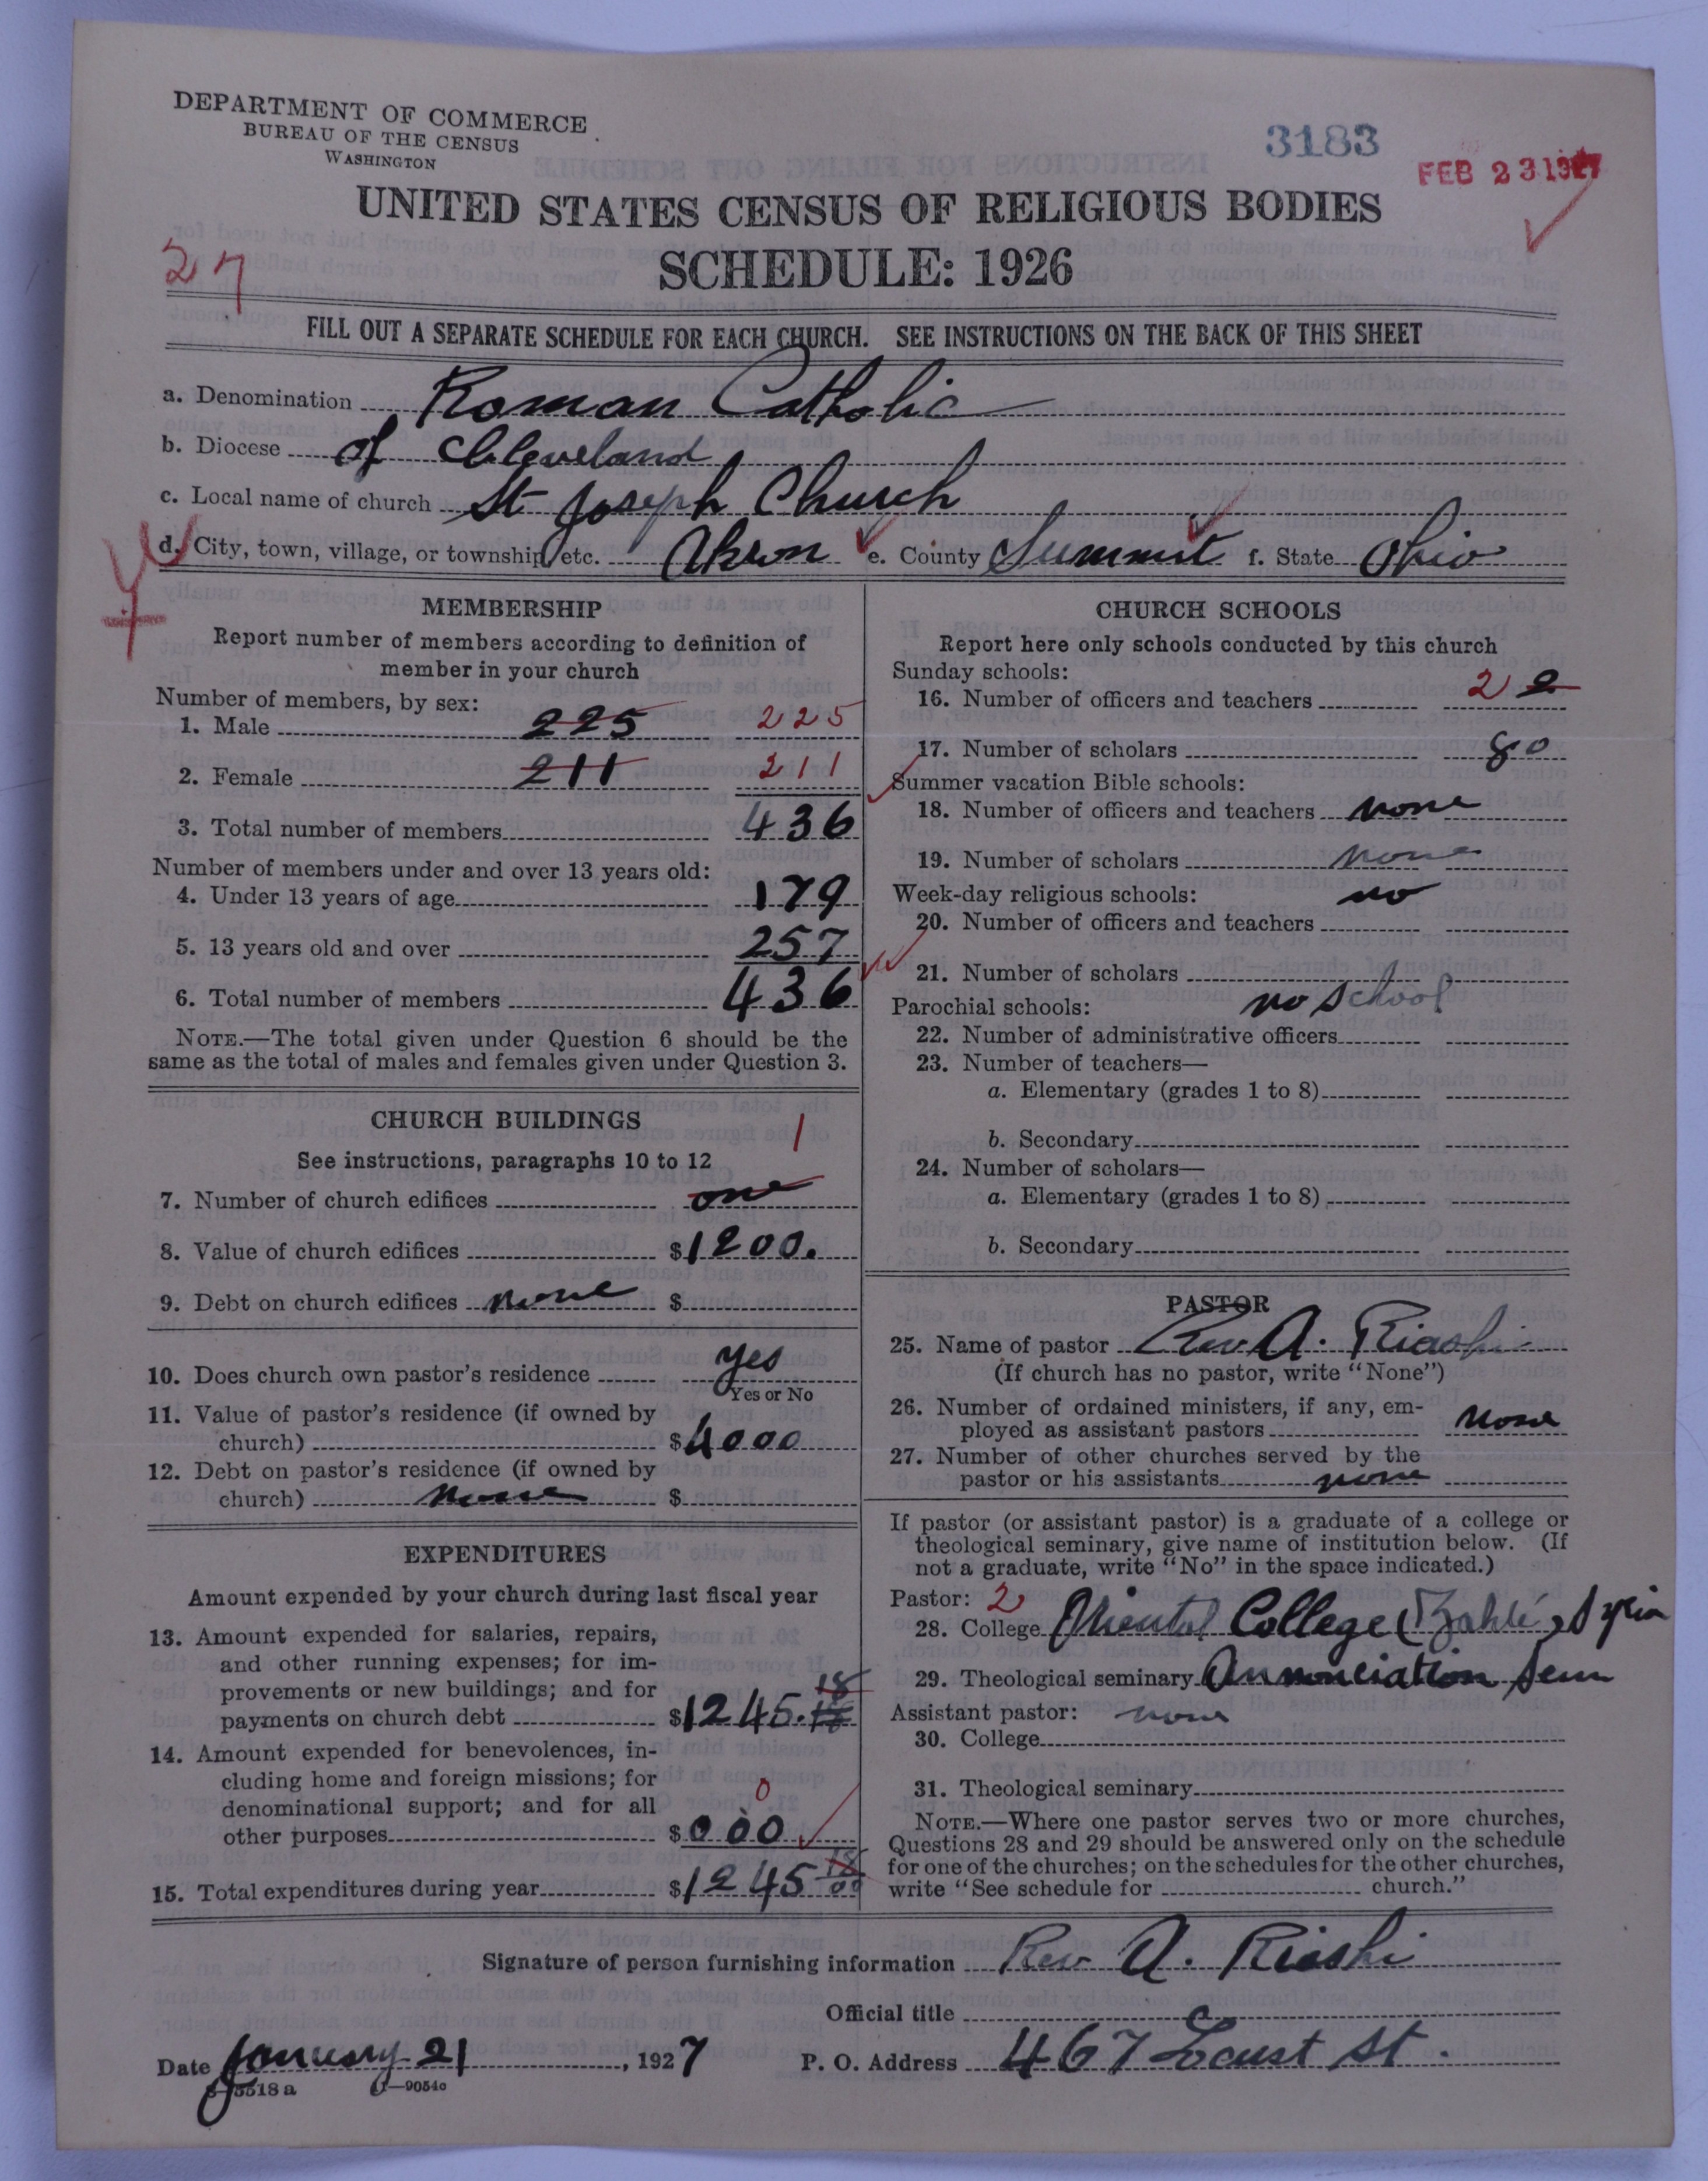 DEPARTMENT OF COMMERCE
BUREAU OF THE CENSUS
WASHINGTON
3183
FEB 23 1927
UNITED STATES CENSUS OF RELIGIOUS BODIES
SCHEDULE: 1926
27
FILL OUT A SEPARATE SCHEDULE FOR EACH CHURCH. SEE INSTRUCTIONS ON THE BACK OF THIS SHEET
a. Denomination Roman Catholic
b. Diocese of Cleveland
c. Local name of church St Joseph Church
d. City, town, village, or township, etc. Akron e. County Summit f. State Ohio
MEMBERSHIP
Report number of members according to definition of
member in your church
Number of members, by sex:
1. Male 225 225
2. Female 211 211
3. Total number of members 436
Number of members under and over 13 years old:
4. Under 13 years of age 179
5. 13 years old and over 257
6. Total number of members 436
NOTE.—The total given under Question 6 should be the
same as the total of males and females given under Question 3.
CHURCH BUILDINGS
1
See instructions, paragraphs 10 to 12
7. Number of church edifices one
8. Value of church edifices $1200.
9. Debt on church edifices none $
10. Does church own pastor's residence yes
Yes or No
11. Value of pastor's residence (if owned by
church) $4000
12. Debt on pastor's residence (if owned by
church) none $
EXPENDITURES
Amount expended by your church during last fiscal year
13. Amount expended for salaries, repairs,
and other running expenses; for im-
provements or new buildings; and for
payments on church debt $1245.18
14. Amount expended for benevolences, in-
cluding home and foreign missions; for
denominational support; and for all
0
other purposes $000
15. Total expenditures during year $1245 18
CHURCH SCHOOLS
Report here only schools conducted by this church
Sunday schools:
16. Number of officers and teachers 2 2
17. Number of scholars 80
Summer vacation Bible schools:
18. Number of officers and teachers none
19. Number of scholars none
Week-day religious schools: no
20. Number of officers and teachers
21. Number of scholars
Parochial schools: no school
22. Number of administrative officers
23. Number of teachers—
a. Elementary (grades 1 to 8)
b. Secondary
24. Number of scholars—
a. Elementary (grades 1 to 8)
b. Secondary
PASTOR
25. Name of pastor Rev A. Riashi
(If church has no pastor, write "None")
26. Number of ordained ministers, if any, em-
ployed as assistant pastors None
27. Number of other churches served by the
pastor or his assistants none
If pastor (or assistant pastor) is a graduate of a college or
theological seminary, give name of institution below. (If
not a graduate, write "No" in the space indicated.)
Pastor: 2
28. College Oriental College (Zahlé, Syria
29. Theological seminary Annonciation Sem
Assistant pastor: none
30. College
31. Theological seminary
NOTE.—Where one pastor serves two or more churches,
Questions 28 and 29 should be answered only on the schedule
for one of the churches; on the schedules for the other churches,
write "See schedule for church."
Signature of person furnishing information Rev A. Riashi
Official title
Date January 21, 1927 P. O. Address 467 Locust St.
8—5518 a 11—9054c